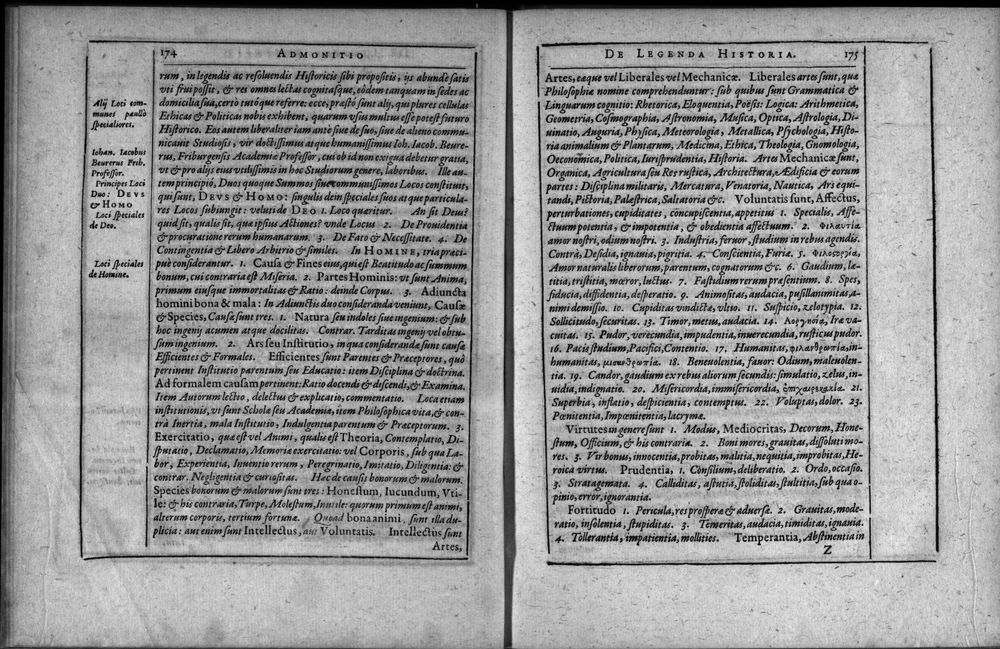 174 ADMONITIO
rum, in legendis ac resoluendis Historicis sibi propositis, ijs abundè satis
vti frui possit, & res omnes lectas cognitasque, eòdem tanquam in sedes ac
domicilia sua, certò tutóque referre: ecce, præstò sunt alij, qui plures cellulas
Ethicas & Politicas nobis exhibent, quarum vsus multus esse potest futuro
Historico. Eos autem liberaliter iam ante siue de suo, siue de alieno commu-
nicauit Studiosis, vir doctissimus atque humanissimus Ioh. Iacob. Beure-
rus, Friburgensis Academiæ Professor, cui ob id non exigua debetur gratia,
vt & pro alijs eius vtilissimis in hoc Studiorum genere, laboribus. Ille au-
tem principiò, Duos quoque Summos siue communissimos Locos constituit,
qui sunt, DEVS & HOMO: singulis dein speciales suos atque particula-
res Locos subiungit: veluti de DEO 1. Loco quæritur. An sit Deus?
quid sit, qualis sit, quæ ipsius Actiones? vnde Locus 2. De Prouidentia
& procuratione rerum humanarum. 3. De Fato & Necessitate. 4. De
Contingentia & Libero Arbitrio & similes. In HOMINE, tria præci-
puè considerantur. 1. Causa & Fines eius, qui est Beatitudo ac summum
bonum, cui contraria est Miseria. 2. Partes Hominis: vt sunt Anima,
primum eiusque immortalitas & Ratio: deinde Corpus. 3. Adiuncta
homini bona & mala: In Adiunctis duo consideranda veniunt, Causæ
& Species, Causæ sunt tres. 1. Natura seu indoles siue ingenium: & sub
hoc ingenij acumen atque docilitas. Contrar. Tarditas ingenij vel obtu-
sum ingenium. 2. Ars seu Institutio, in qua consideranda, sunt causæ
Efficientes & Formales. Efficientes sunt Parentes & Præceptores, quò
pertinent Institutio parentum seu Educatio: item Disciplina & doctrina.
Ad formalem causam pertinent: Ratio docendi & discendi, & Examina.
Item Autorum lectio, delectus & explicatio, commentatio. Loca etiam
institutionis, vt sunt Scholæ seu Academiæ, item Philosophica vita, & con-
trà Inertia, mala Institutio, Indulgentia parentum & Præceptorum. 3.
Exercitatio, quæ est vel Animi, qualis est Theoria, Contemplatio, Di-
sputatio, Declamatio, Memoriæ exercitatio: vel Corporis, sub qua La-
bor, Experientia, Inuentio rerum, Peregrinatio, Imitatio, Diligentia: &
contrar. Negligentia & curiositas. Hac de causis bonorum & malorum.
Species bonorum & malorum sunt tres: Honestum, Iucundum, Vti-
le: & his contraria, Turpe, Molestum, Inutile: quorum primum est animi,
alterum corporis, tertium fortunæ. Quoad bona animi, sunt illa du-
plicia: aut enim sunt Intellectus, aut Voluntatis. Intellectus sunt
Artes,
Alij Loci com-
munes paullò
specialiores.
Iohan. Iacobus
Beurerus Frib.
Professor.
Principes Loci
Duo: DEVS
& HOMO
Loci speciales
de Deo.
Loci speciales
de Homine.
DE LEGENDA HISTORIA. 175
Artes, eæque vel Liberales vel Mechanicæ. Liberales artes sunt, quæ
Philosophiæ nomine comprehenduntur: sub quibus sunt Grammatica &
Linguarum cognitio: Rhetorica, Eloquentia, Poësis: Logica: Arithmetica,
Geometria, Cosmographia, Astronomia, Musica, Optica, Astrologia, Di-
uinatio, Auguria, Physica, Meteorologia, Metallica, Psychologia, Histo-
ria animalium & Plantarum, Medicina, Ethica, Theologia, Gnomologia,
Oeconomica, Politica, Iurisprudentia, Historia. Artes Mechanicæ sunt,
Organica, Agricultura seu Res rustica, Architectura, Ædificia & eorum
partes: Disciplina militaris, Mercatura, Venatoria, Nautica, Ars equi-
tandi, Pictoria, Palæstrica, Saltatoria &c. Voluntatis sunt, Affectus,
perturbationes, cupiditates, concupiscentia, appetitus 1. Specialis, Affe-
ctuum potentia, & impotentia, & obedientia affectuum. 2. Φιλαυτία
amor nostri, odium nostri. 3. Industria, feruor, studium in rebus agendis.
Contrà, Desidia, ignauia, pigritia. 4. Conscientia, Furiæ. 5. Φιλοστοργία,
Amor naturalis liberorum, parentum, cognatorum &c. 6. Gaudium, læ-
titia, tristitia, mœror, luctus. 7. Fastidium rerum præsentium. 8. Spes,
fiducia, diffidentia, desperatio. 9. Animositas, audacia, pusillanimitas, a-
nimi demissio. 10. Cupiditas vindictæ, vltio. 11. Suspicio, zelotypia. 12.
Sollicitudo, securitas. 13. Timor, metus, audacia. 14. Iræ va-
cuitas. 15. Pudor, verecundia, impudentia, inuerecundia, rusticus pudor.
16. Pacis studium, Pacifici, Contentio. 17. Humanitas, φιλανθρωπία, in-
humanitas, μισανθρωπία. 18. Beneuolentia, fauor: Odium, maleuolen-
tia. 19. Candor, gaudium ex rebus aliorum secundis: simulatio, zelus, in-
uidia, indignatio. 20. Misericordia, immisericordia, ἐπιχαιρεκακία. 21.
Superbia, inflatio, despicientia, contemptus. 22. Voluptas, dolor. 23.
Pœnitentia, Impœnitentia, lacrymæ.
Virtutes in genere sunt 1. Modus, Mediocritas, Decorum, Hone-
stum, Officium, & his contraria. 2. Boni mores, grauitas, dissoluti mo-
res. 3. Vir bonus, innocentia, probitas, malitia, nequitia, improbitas, He-
roica virtus. Prudentia, 1. Consilium, deliberatio. 2. Ordo, occasio.
3. Stratagemata. 4. Calliditas, astutia, stoliditas, stultitia, sub qua o-
pinio, error, ignorantia.
Fortitudo 1. Pericula, res prosperæ & aduersæ. 2. Grauitas, mode-
ratio, insolentia, stupiditas. 3. Temeritas, audacia, timiditas, ignauia.
4. Tollerantia, impatientia, mollities. Temperantia, Abstinentia in
Z